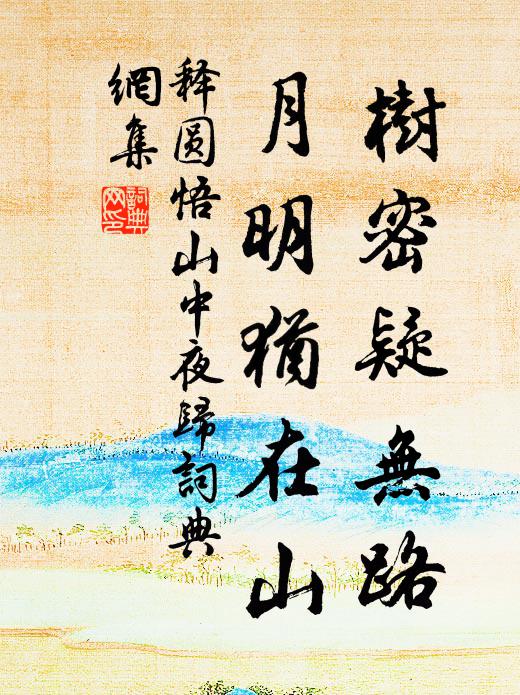 樹密疑無路
月明猶在山
释圓悟山中夜歸詞典
網集
詞典
网印